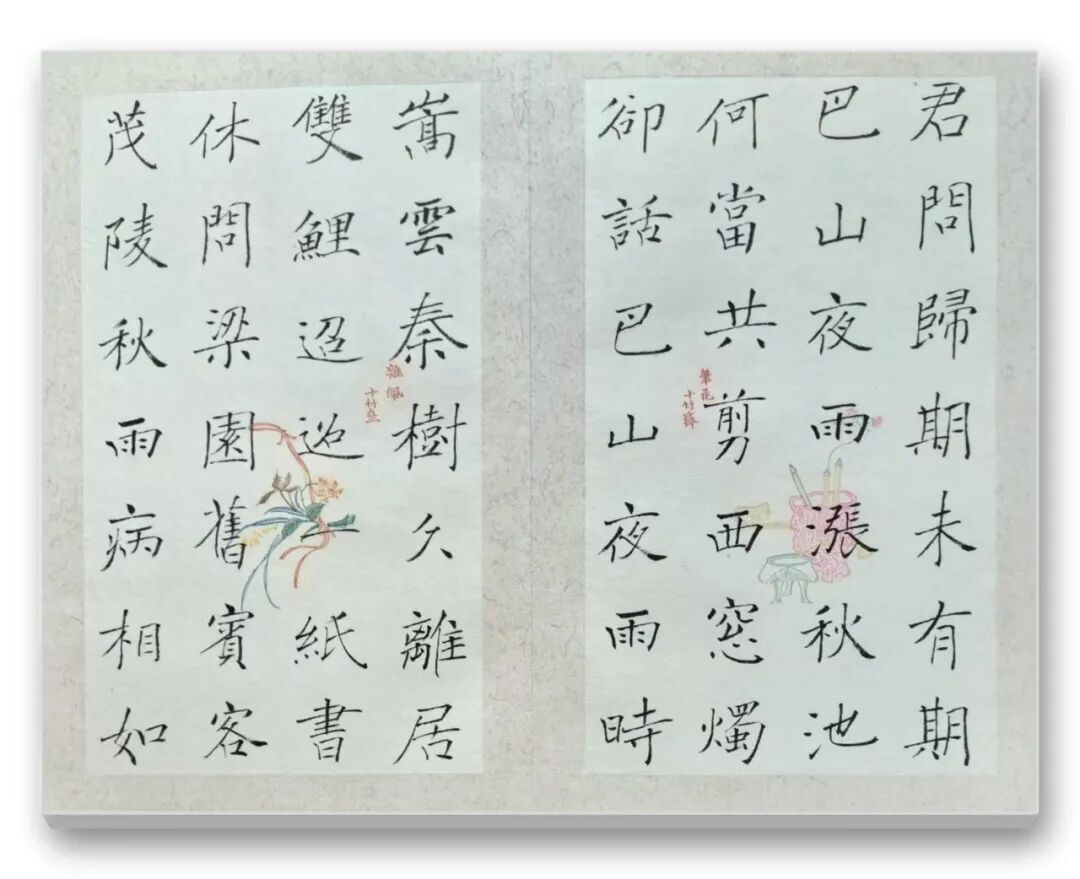 君問歸期未有期
巴山夜雨漲秋池
何當共剪西窓燭
卻話巴山夜雨時
筆花
十竹齋
嵩雲秦樹久離居
雙鯉迢迢一紙書
休問梁園舊賓客
茂陵秋雨病相如
雜佩
十竹